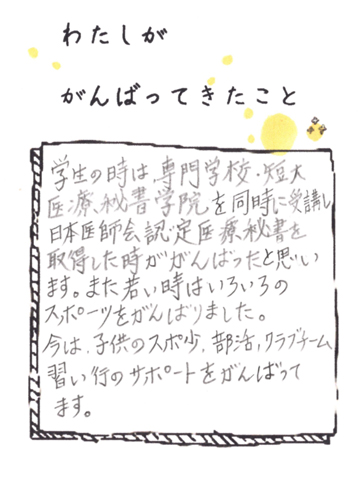 わたしが
がんばってきたこと
学生の時は、専門学校・短大
医療秘書学院を同時に受講し
日本医師会認定医療秘書を
取得した時ががんばったと思い
ます。また若い時はいろいろの
スポーツをがんばりました。
今は、子供のスポ少、部活、クラブチーム
習い行のサポートをがんばって
ます。